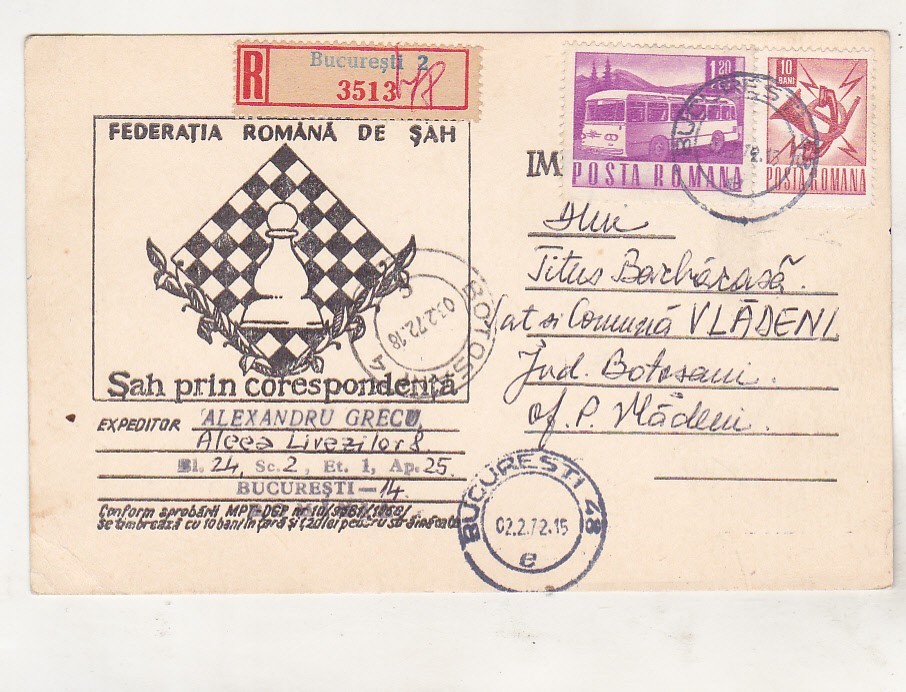 R
București 2
3513
FEDERAȚIA ROMÂNĂ DE ȘAH
Șah prin corespondență
EXPEDITOR ALEXANDRU GRECU
Aleea Livezilor 8
Bl. 24, Sc. 2, Et. 1, Ap. 25.
BUCUREȘTI—14.
Conform aprobării MPT-DGP nr. 10/
se timbrează cu 10 bani în țară și
1,20
POSTA ROMANA
10
BANI
POSTA ROMANA
IM
Titus Barbărasă
Sat si Comună VLĂDENI
Jud. Botoșani.
of. P. Vlădeni
BUCUREȘTI
BOTOȘANI
03.2.72.18
BUCURESTI 48
02.2.72.15
e